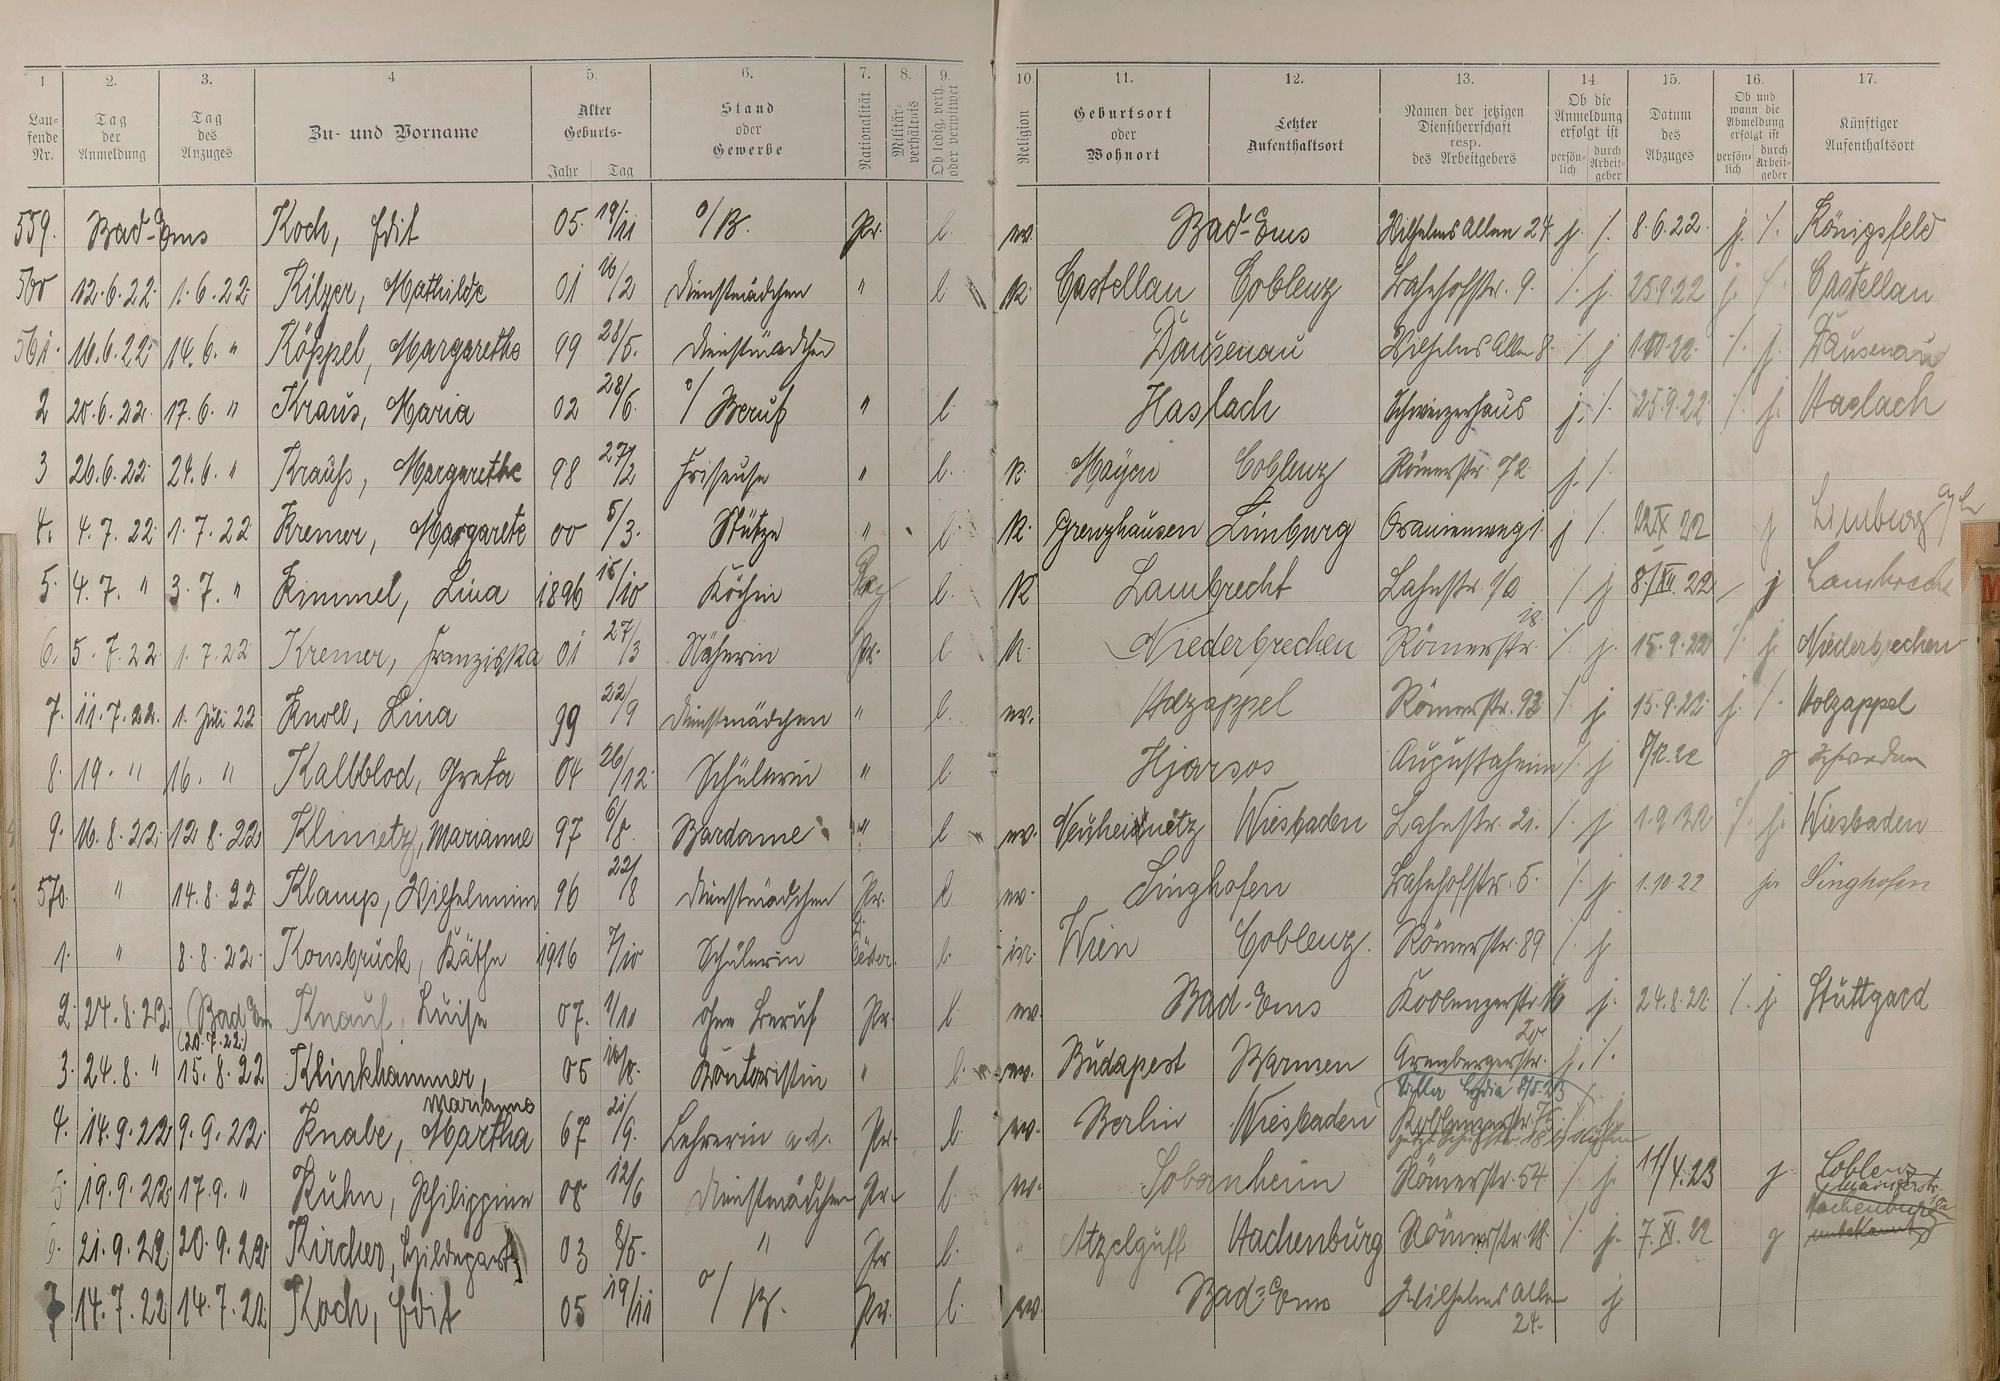 1 2. 3. 4 5. 6. 7. 8. 9. 10. 11. 12. 13. 14. 15. 16. 17.
Lau- fende Nr. Tag der Anmeldung Tag des Anzuges Zu- und Vorname Alter Geburts- Jahr Tag Stand oder Gewerbe Nationalität Militär- verhältnis Ob ledig, verh. oder verwitwet Religion Geburtsort oder Wohnort Letzter Aufenthaltsort Namen der jetzigen Dienstherrschaft resp. des Arbeitgebers Ob die Anmeldung erfolgt ist persön- lich durch Arbeit- geber Datum des Abzuges Ob und wann die Abmeldung erfolgt ist persön- lich durch Arbeit- geber Künftiger Aufenthaltsort
559. Bad-Ems Koch, Edit 05. 19/11 o/B. Pr. l. ev. Bad-Ems Wilhelms Allee 24 j. /. 8.6.22. j. /. Königsfeld
560 12.6.22. 1.6.22 Kilzer, Mathilde 01 16/2 Dienstmädchen " l. K. Castellau Coblenz Bahnhofstr. 9. /. j. 25.9.22 j. /. Castellau
561. 16.6.22 14.6. " Köppel, Margarethe 99 28/5. Dienstmädchen Dausenau Wilhelms Allee 8. /. j 1.10.22. /. j. Dausenau
2 20.6.22. 17.6. " Kraus, Maria 02 28/6. o/ Beruf " l. Haslach Schweizerhaus j. /. 25.9.22 /. j. Haslach
3 26.6.22. 24.6. " Krauhs, Margarethe 98 27/2 Friseuse " l. K. Mayen Coblenz Römerstr. 72 j. /.
4. 4.7.22 1.7.22 Kremer, Margarete 00 5/3. Stütze " l. K. Grenzhausen Limburg Oranienweg 1. j /. 22.IX 22 j Limburg
5. 4.7. " 3.7. " Kimmel, Lina 1896 15/10 Köchin Bay l. K Lambrecht Lahnstr. 1/2 /. j 8./XII. 22 j Lambrecht
6. 5.7.22 1.7.22 Kremer, Franziska 01 27/3 Näherin Pr. l K. Niederbrechen Römerstr. 18. /. j. 15.9.22 /. j. Niederbrechen
7. 11.7.22. 1. Juli 22 Knoll, Lina 99 22/9 Dienstmädchen " l. ev. Holzappel Römerstr. 92 /. j. 15.9.22. j. /. Holzappel
8. 19. " 16. " Kaltblod, Greta 04 26/12. Schülerin " l. Hjarsos Augustaheim /. j 8/12.22 j Schweden
9. 16.8.22 12.8.22 Klimetz, Marianne 97 6/8. Bardame " l ev. Wiesbaden Lahnstr. 21. /. j 1.9.22 /. j. Wiesbaden
570. " 14.8.22 Klamp, Wilhelmine 96 22/8 Dienstmädchen Pr. l. ev. Singhofen Bahnhofstr. 5. /. j. 1.10.22 ja Singhofen
1. " 8.8.22. Konsbrück, Käthe 1916 7/10 Schülerin l. isr. Wien Coblenz. Römerstr. 89 /. j
2. 24.8.22 Bad Em (20.7.22.) Knauf, Luise 07. 1/10 ohne Beruf Pr. l. ev. Bad-Ems Koblenzerstr. j. 24.8.22 /. j Stuttgard
3. 24.8. " 15.8.22 Klinkhammer, Marianne 05 10/8. Kontoristin " l. ev. Budapest Barmen Arenbergerstr. 20 j. /.
4. 14.9.22 9.9.22. Knabe, Martha 67 21/9. Lehrerin a.d. Pr. l. ev. Berlin Wiesbaden Villa Lydia Koblenzerstr. 75 /. j.
5. 19.9.22 17.9. " Kuhn, Philippine 08 12/6 Dienstmädchen Pr. l. ev. Sobernheim Römerstr. 54 /. j. 11/4.23 j. Coblenz Mainzerstr.
6. 21.9.22 20.9.22 Kircher, Hildegard 03 8/5. " Pr l. " Atzelgift Hachenburg Römerstr. 18. /. j. 7.XI.22 j Hachenburg unbekannt
7 14.7.22 14.7.22 Koch, Edit 05 19/11 o/ B. Pr. l. ev. Bad-Ems Wilhelms Allee 24. j